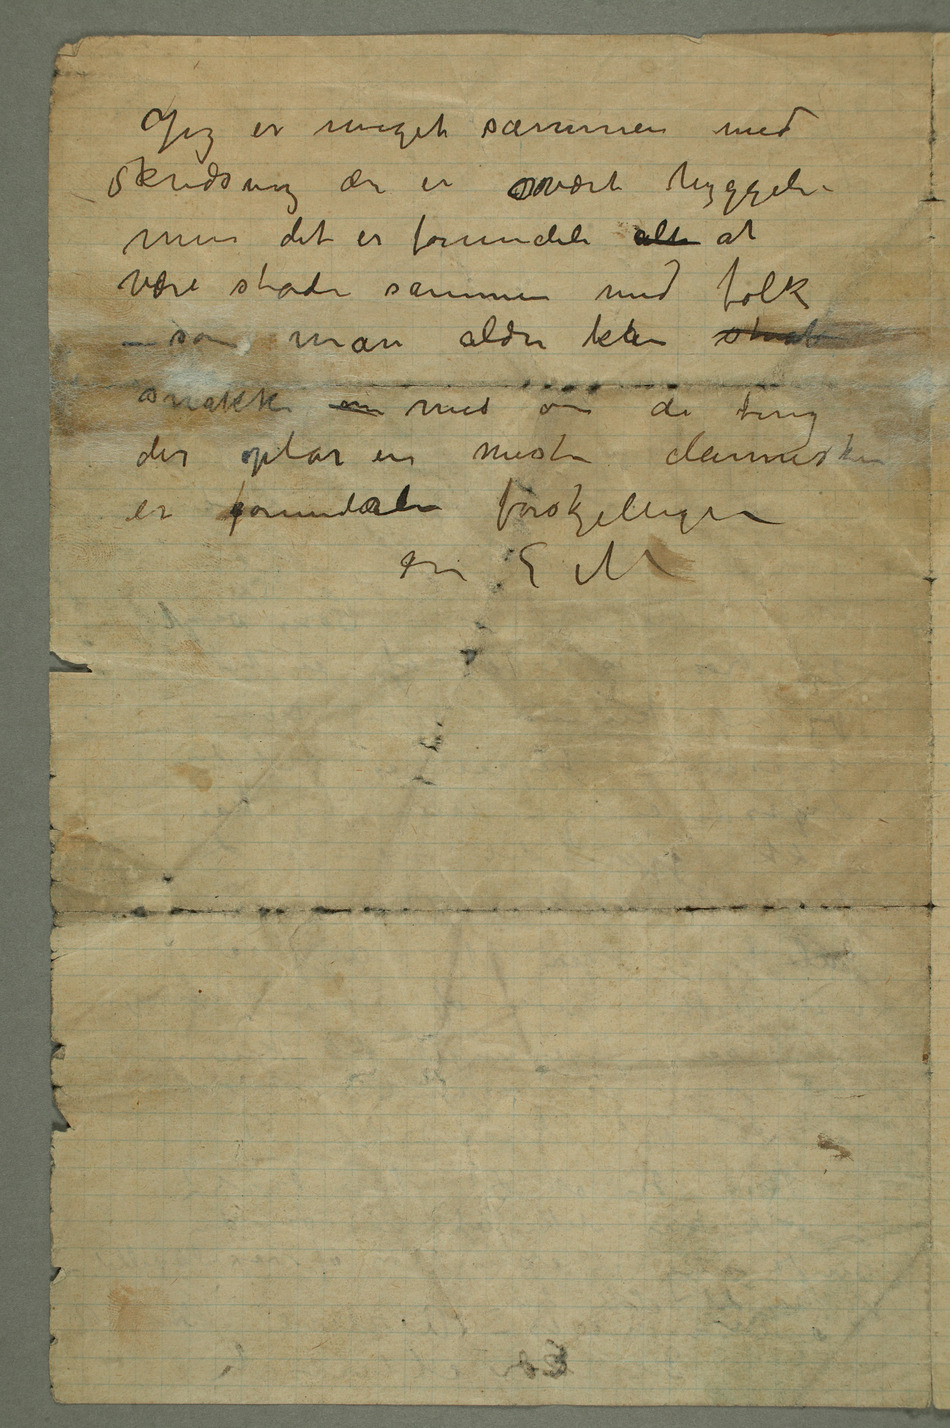 Jeg er meget sammen med
Skredsvig der er svært hyggeli
men det er forunderli alt at
være stadi sammen med folk
– som man aldri kan
snakke om med om de ting
der optar en mest
er forunderlie forskjellige
E M